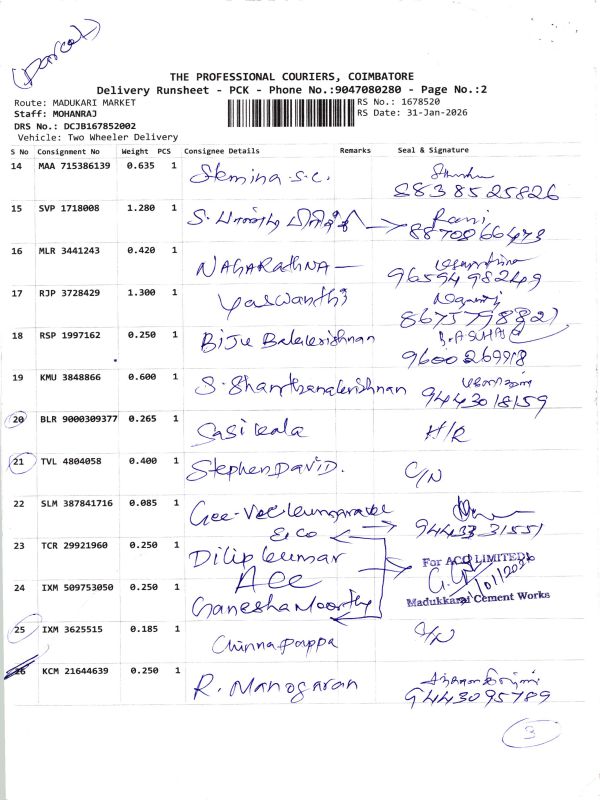 (Parcel)
THE PROFESSIONAL COURIERS, COIMBATORE
Delivery Runsheet - PCK - Phone No.:9047080280 - Page No.:2
Route: MADUKARI MARKET RS No.: 1678520
Staff: MOHANRAJ RS Date: 31-Jan-2026
DRS No.: DCJB167852002
Vehicle: Two Wheeler Delivery
S No Consignment No Weight PCS Consignee Details Remarks Seal & Signature
14 MAA 715386139 0.635 1 Stemina S.C.
8838525826
15 SVP 1718008 1.280 1 S. Rani
8870866473
16 MLR 3441243 0.420 1 NAGARathNA
9659498249
17 RJP 3728429 1.300 1 Yaswanthi
18 RSP 1997162 0.250 1 Biju Balakrishnan B.ASHA
9600269918
19 KMU 3848866 0.600 1 S. Shanthanakrishnan
9443018159
20 BLR 9000309377 0.265 1 Sasikala H/R
21 TVL 4804058 0.400 1 Stephen David. C/N
22 SLM 387841716 0.085 1 Gee-Vee
& Co
23 TCR 29921960 0.250 1 Dilip kumar For ACC LIMITED
ACC
24 IXM 509753050 0.250 1 Ganesha Moorthy Madukkarai Cement Works
25 IXM 3625515 0.185 1 Chinnapappa C/N
26 KCM 21644639 0.250 1 R. Manogaran
9443095789
3